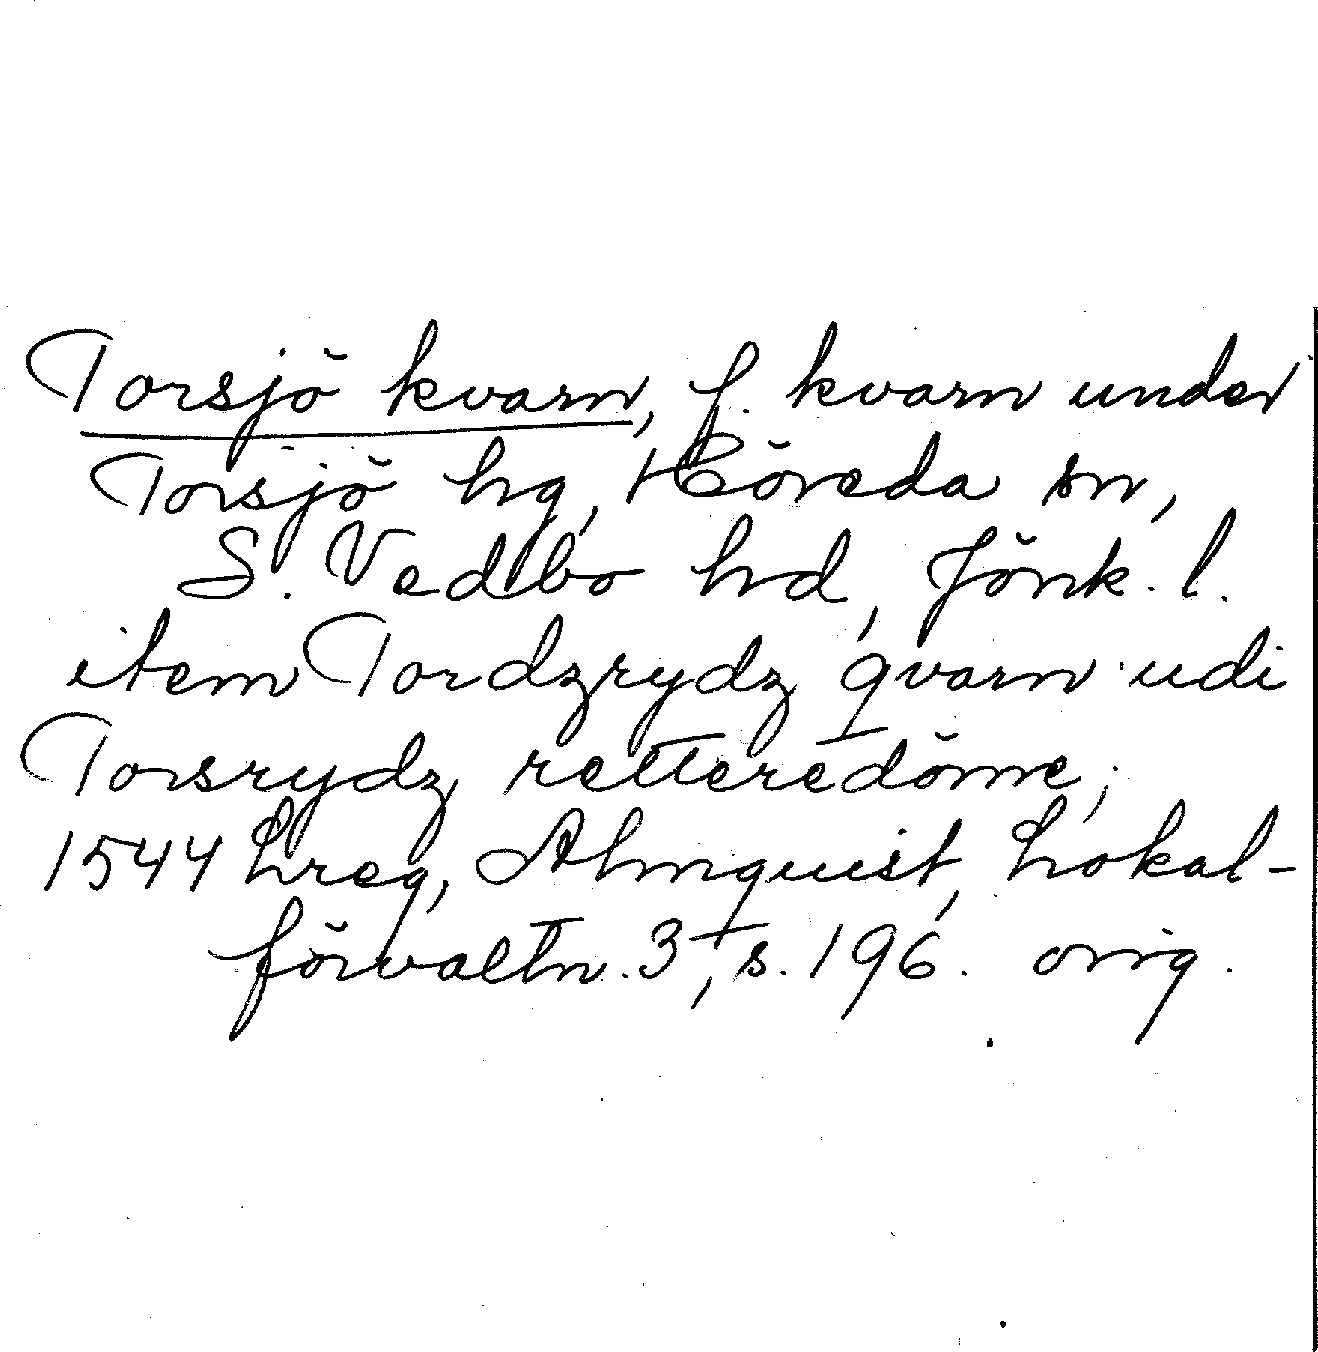 Torsjö kvarn, f. kvarn under
Torsjö hg, Höreda sn,
S. Vedbo hd, Jönk. l.
item Tordzrydz qvarn udi
Torsrydz retteredöme;
1544 Lreg, Almquist, Lokal-
förvaltn. 3, s. 196. orig.